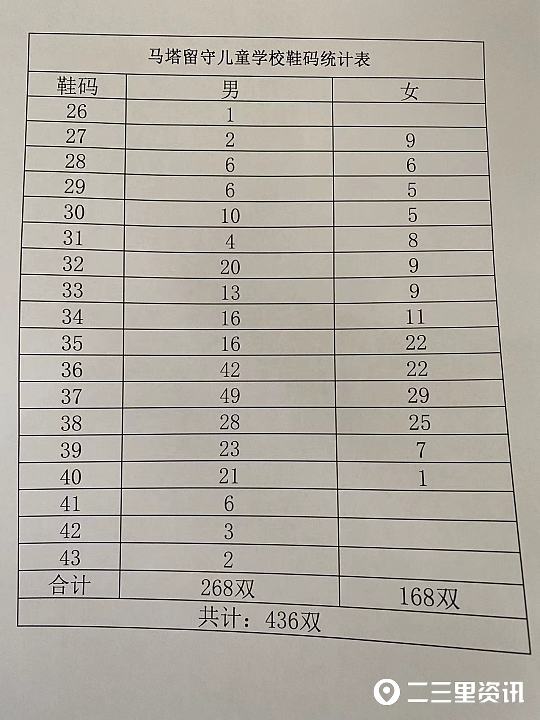 马塔留守儿童学校鞋码统计表
鞋码 男 女
26 1
27 2 9
28 6 6
29 6 5
30 10 5
31 4 8
32 20 9
33 13 9
34 16 11
35 16 22
36 42 22
37 49 29
38 28 25
39 23 7
40 21 1
41 6
42 3
43 2
合计 268双 168双
共计：436双
二三里资讯